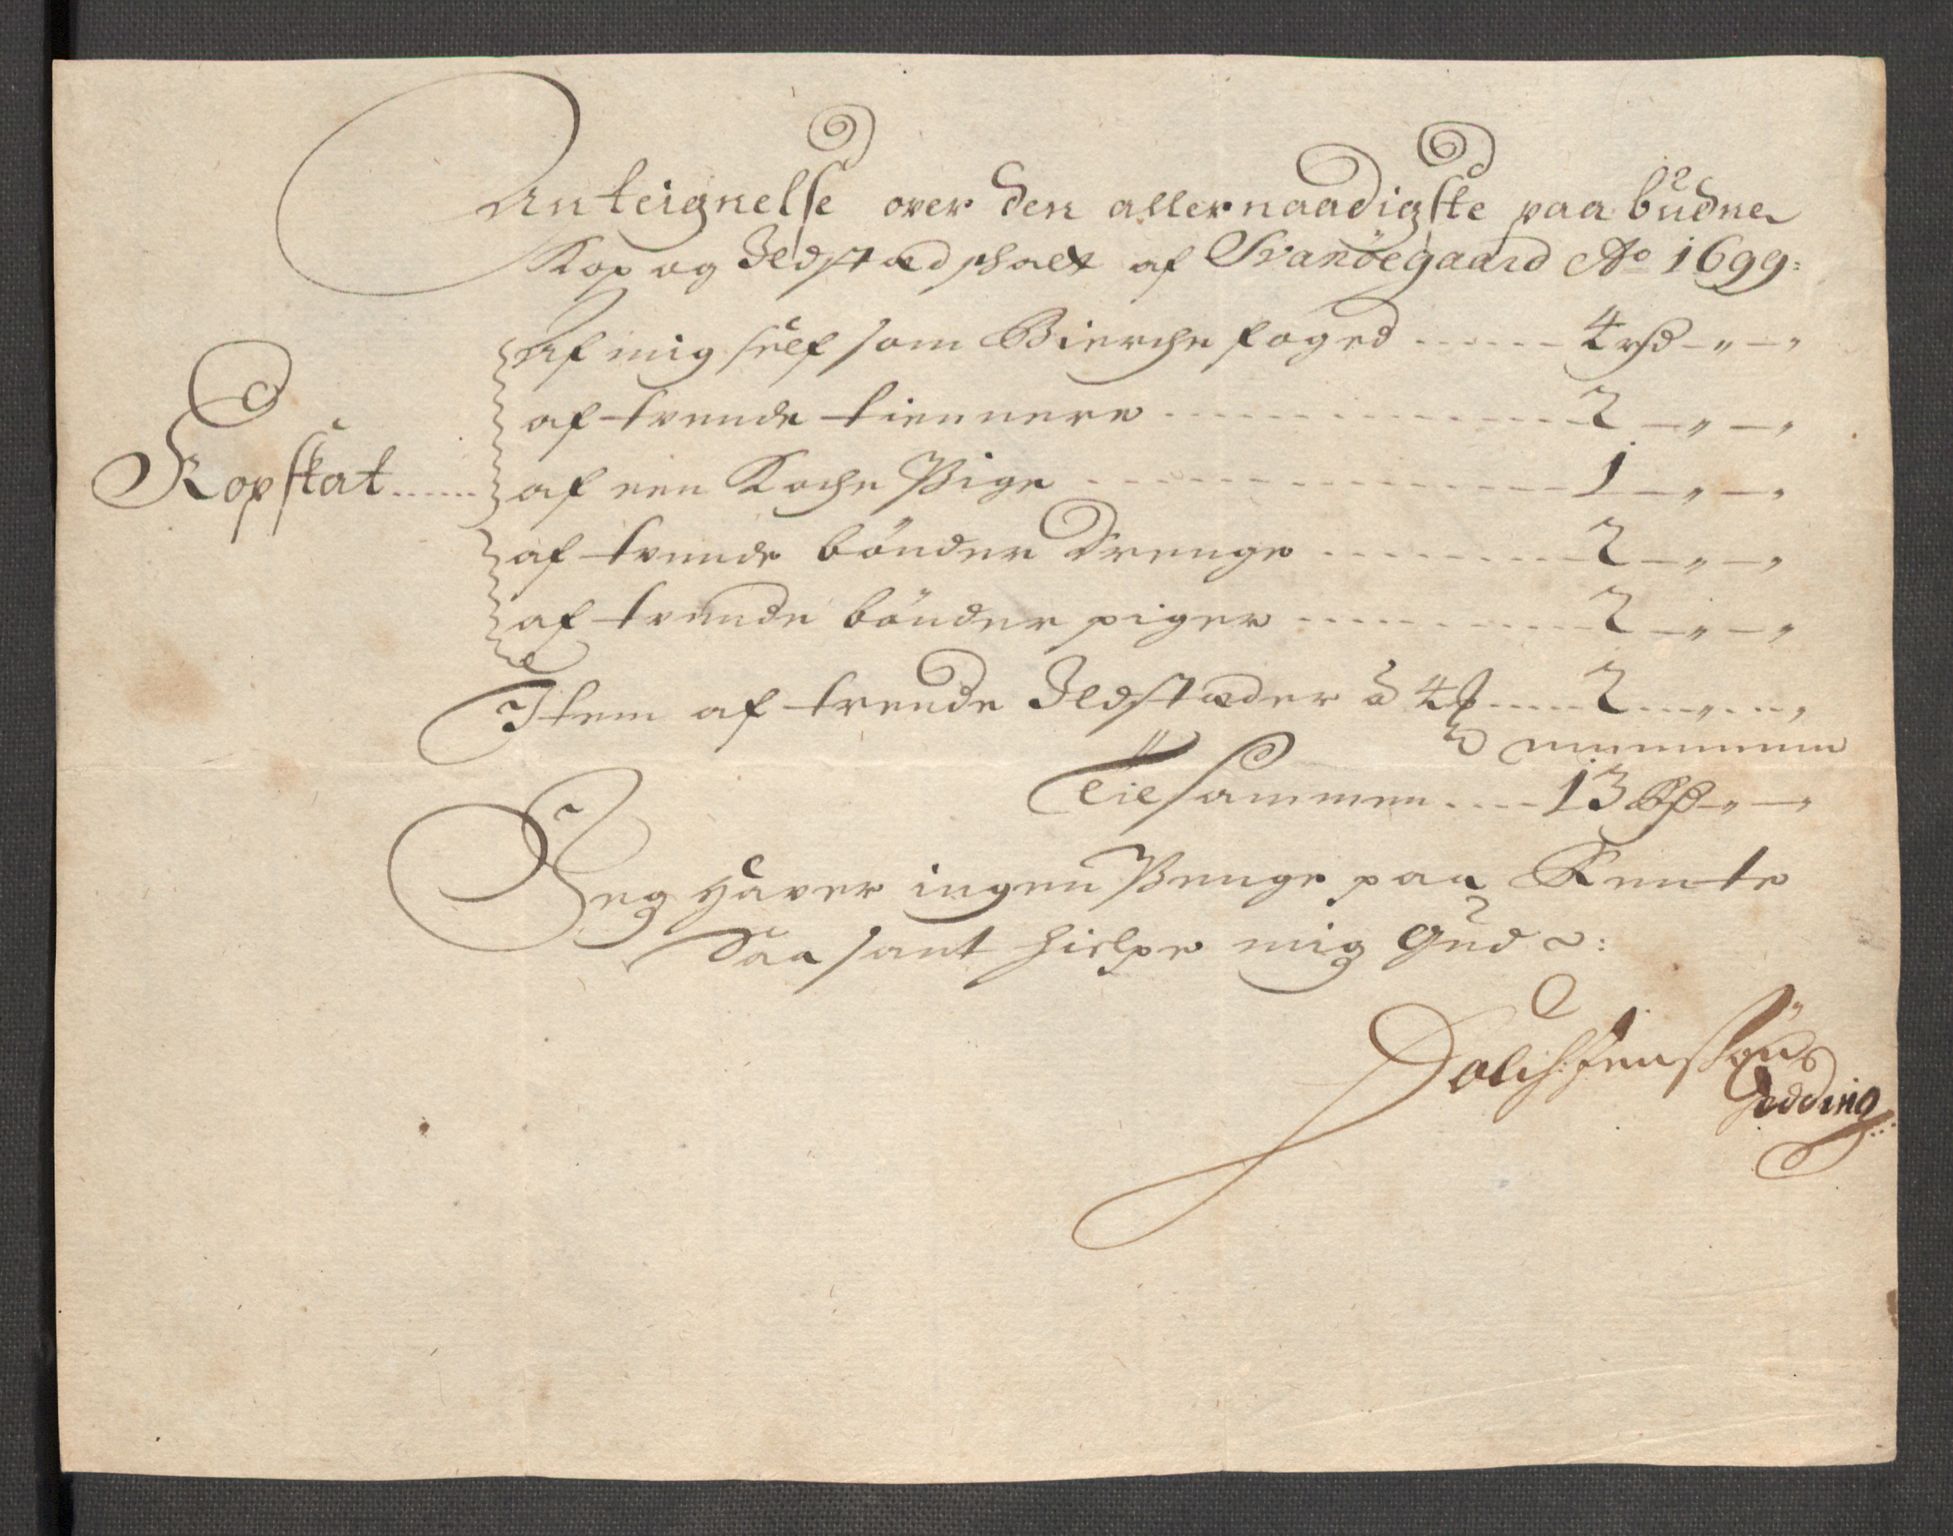 Anteignelse over den allernaadigste paa budne
Kop og Ildstædschatt af Svanöegaard Ao 1699:
Af mig self som Bierche foged ...... 4 rd - " - "
af trende tiennere ...... 2 - " - "
Kopskat ...... af een Koche Pige ...... 1 - " - "
af trende bönder Drenge ...... 2 - " - "
af trende bönder piger ...... 2 - " - "
Item af trende Ildstæder à 4 ...... 2 ... " ... "
Tilsammen .... 13 Rd - " - "
Jeg haver ingen Penge paa Rente
Saa sant hielpe mig Gud: